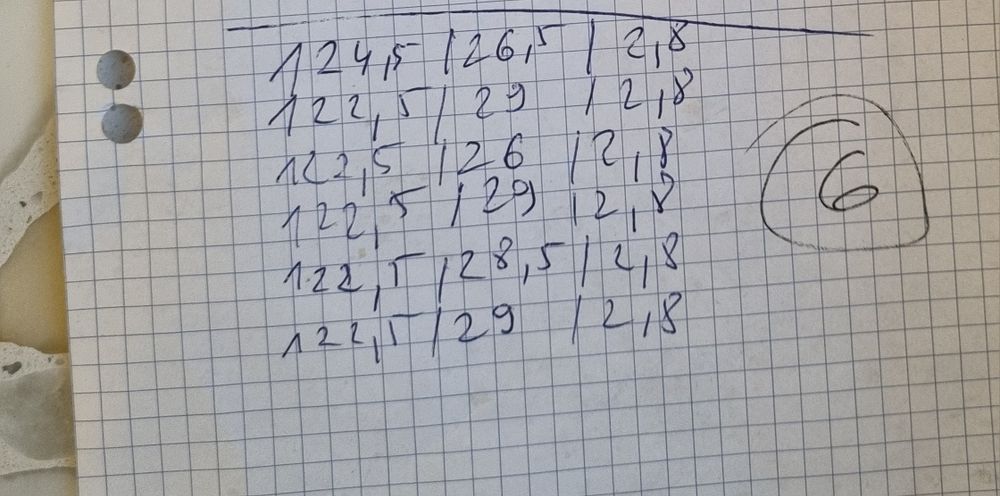 124,5 / 26,5 / 2,8
122,5 / 29 / 2,8
122,5 / 26 / 2,8
122,5 / 29 / 2,8
122,5 / 28,5 / 2,8
122,5 / 29 / 2,8
6